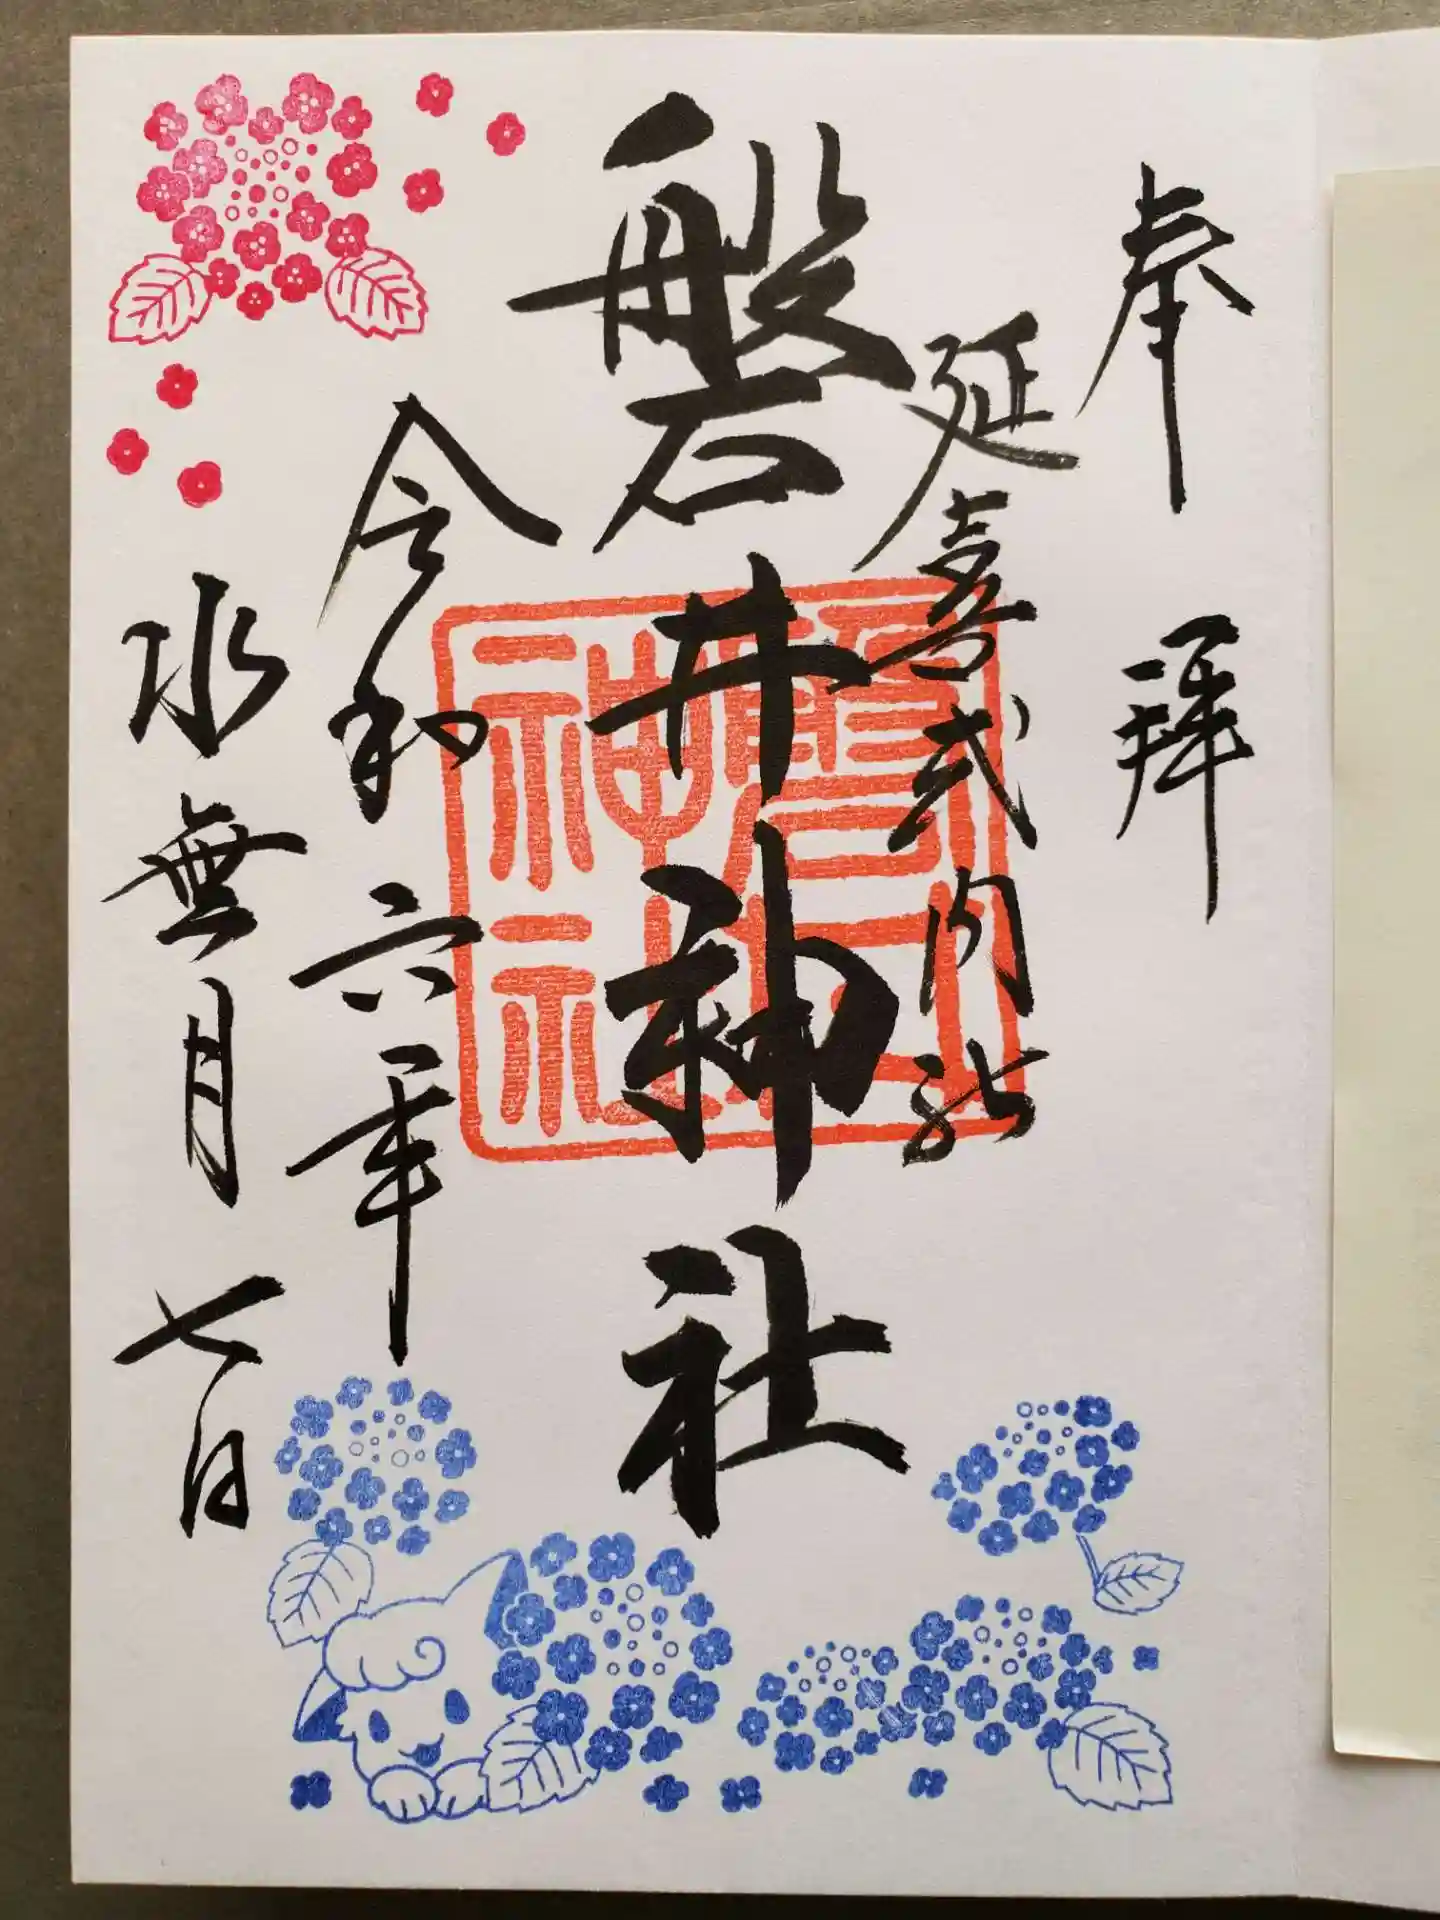 奉拝
延喜式内社
磐井神社
令和六年
水無月七日
磐井神社